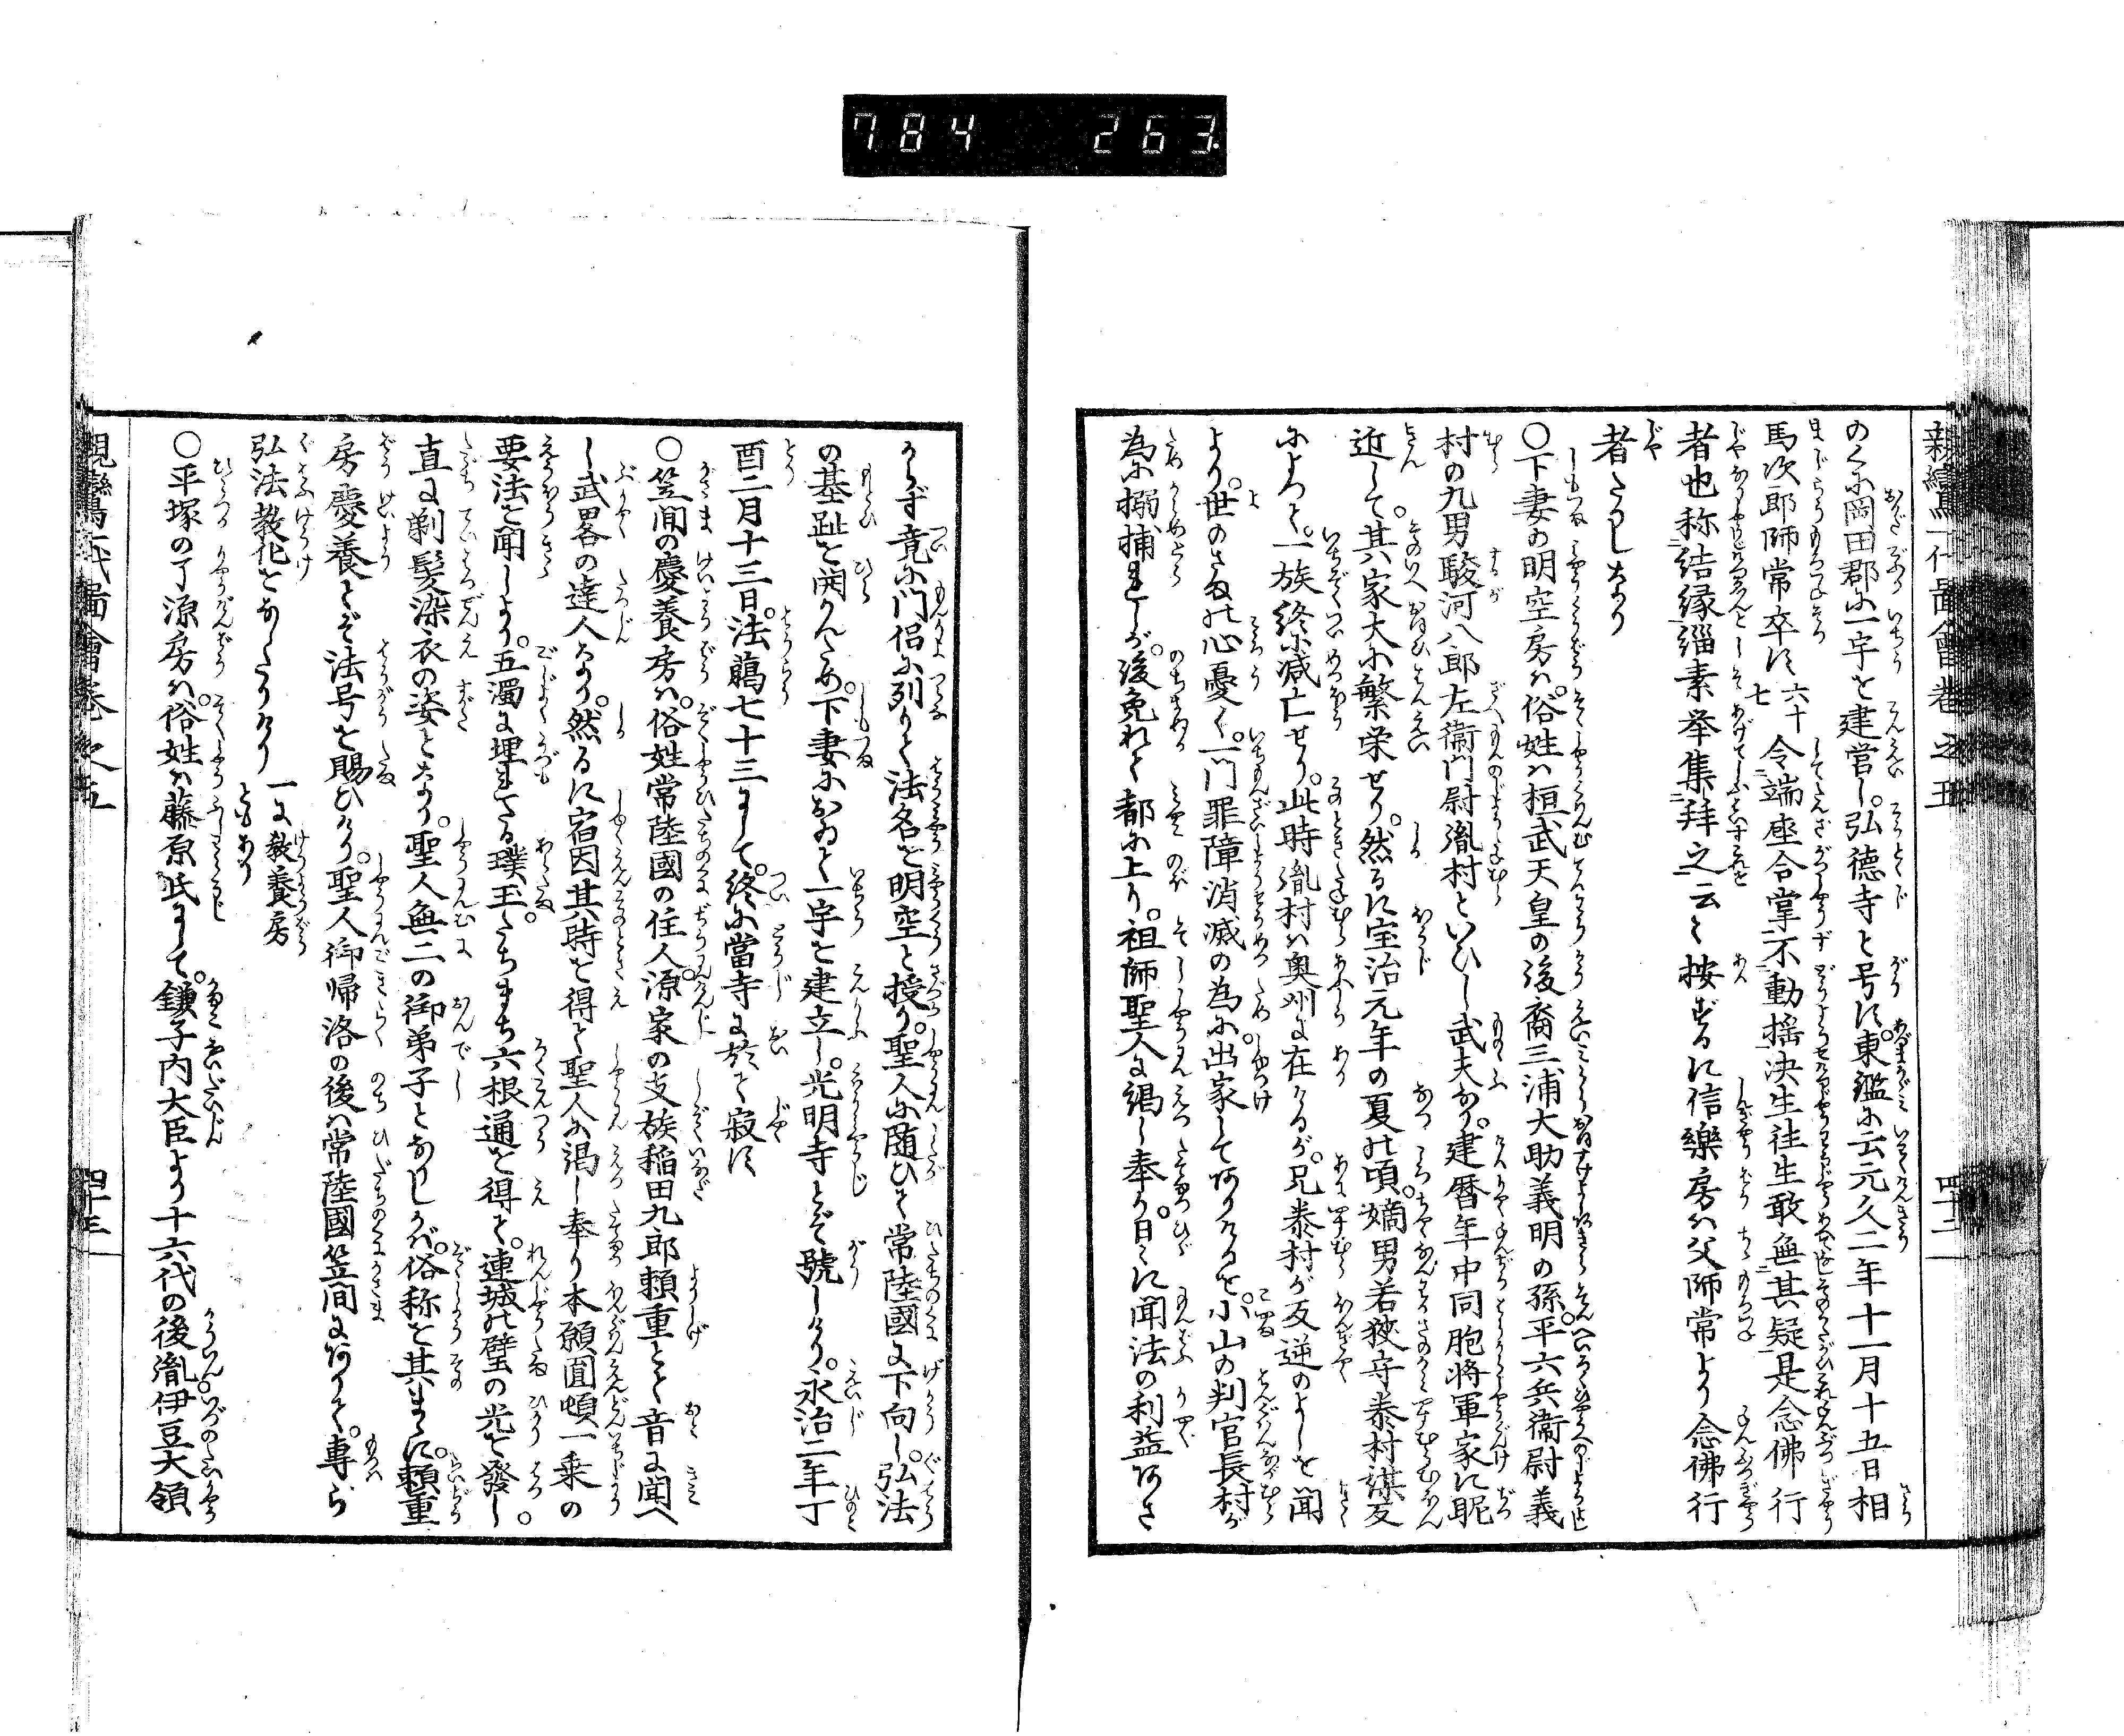 784 263
親鸞一代啚會巻之五 四十二
のくに岡田郡に一宇を建営し。弘德寺と号す。東鑑に云元久二年十一月十五日相
馬次郎師常卒す六十七令端座合掌不動揺决生徃生敢無其疑是念佛行
者也称結縁緇素挙集拜之云々按ずるに信樂房は父師常より念佛行
者たりしなり
○下妻の明空房は。俗姓は桓武天皇の後裔三浦大助義明の孫。平六兵衞尉義
村の九男駿河八郎左衞門尉胤村といひし武夫なり。建暦年中同胞将軍家に昵
近して。其家大に繁栄せり。然るに宝治元年の夏の頃。嫡男若狹守泰村謀反
によつて。一族終に滅亡せり。此時胤村は奥州に在けるが。兄泰村が反逆のよしを聞
より。世のさま心憂く。一門罪障消滅の為に。出家してありけるを。小山の判官長村が
為に搦捕れしが。後免れて都に上り。祖師聖人に謁し奉り。日々に聞法の利益あさ
からず竟に門侶に列りて法名を明空と授り。聖人に随ひて常陸國に下向し。弘法
の基趾を開かんため。下妻において一宇を建立し。光明寺とぞ號しける。永治二年丁
酉二月十三日。法﨟七十三にして。終に當寺に於て寂す
○笠間の慶養房は。俗姓常陸國の住人。源家の支族稲田九郎頼重とて音に聞へ
し武畧の達人なり。然るに宿因其時を得て聖人に謁し奉り本願圓頓一乗の
要法を聞しより。五濁に埋れたる璞玉。たちまち六根通を得て。連城の璧の光を發し。
直に剃髪染衣の姿となり。聖人無二の御弟子となりしかば。俗称を其まゝに。頼重
房慶養とぞ法号を賜ひける。聖人御帰洛の後は常陸國笠间にありて。専ら
弘法教化をなしたりけり 一に敎養房ともあり
○平塚の了源房は。俗姓は藤原氏にして。鎌子内大臣より十六代の後胤伊豆大領
親鸞一代啚會巻之五 四十三